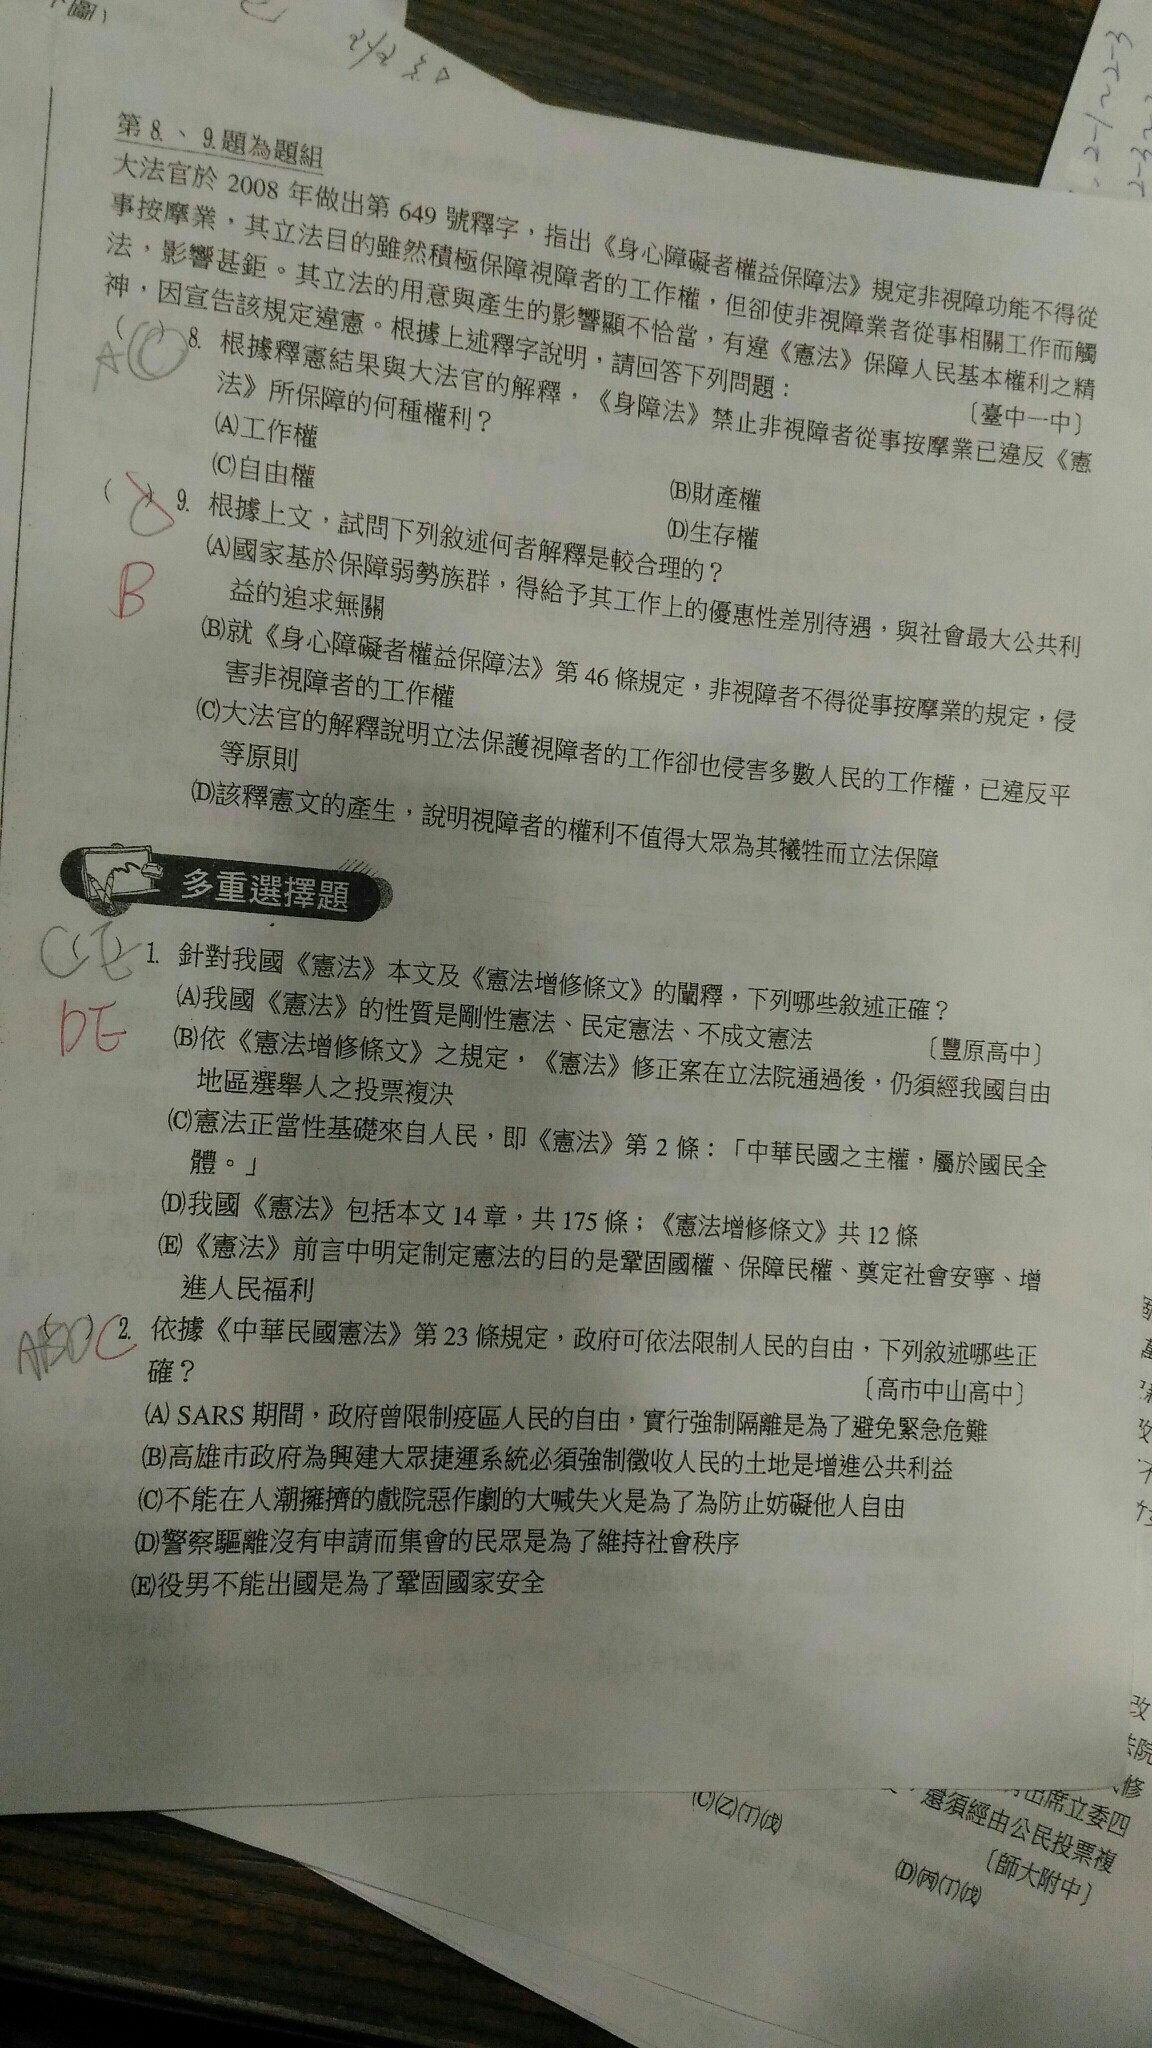 第 8.、9.題為題組
大法官於 2008 年做出第 649 號釋字，指出《身心障礙者權益保障法》規定非視障功能不得從
事按摩業，其立法目的雖然積極保障視障者的工作權，但卻使非視障業者從事相關工作而觸
法，影響甚鉅。其立法的用意與產生的影響顯不恰當，有違《憲法》保障人民基本權利之精
神，因宣告該規定違憲。根據上述釋字說明，請回答下列問題：
〔臺中一中〕
A ( C ) 8. 根據釋憲結果與大法官的解釋，《身障法》禁止非視障者從事按摩業已違反《憲
法》所保障的何種權利？
(A)工作權
(B)財產權
(C)自由權
(D)生存權
( ) 9. 根據上文，試問下列敘述何者解釋是較合理的？
B
(A)國家基於保障弱勢族群，得給予其工作上的優惠性差別待遇，與社會最大公共利
益的追求無關
(B)就《身心障礙者權益保障法》第 46 條規定，非視障者不得從事按摩業的規定，侵
害非視障者的工作權
(C)大法官的解釋說明立法保護視障者的工作卻也侵害多數人民的工作權，已違反平
等原則
(D)該釋憲文的產生，說明視障者的權利不值得大眾為其犧牲而立法保障
多重選擇題
CE ( ) 1. 針對我國《憲法》本文及《憲法增修條文》的闡釋，下列哪些敘述正確？
DE
(A)我國《憲法》的性質是剛性憲法、民定憲法、不成文憲法
〔豐原高中〕
(B)依《憲法增修條文》之規定，《憲法》修正案在立法院通過後，仍須經我國自由
地區選舉人之投票複決
(C)憲法正當性基礎來自人民，即《憲法》第 2 條：「中華民國之主權，屬於國民全
體。」
(D)我國《憲法》包括本文 14 章，共 175 條；《憲法增修條文》共 12 條
(E)《憲法》前言中明定制定憲法的目的是鞏固國權、保障民權、奠定社會安寧、增
進人民福利
ABD C ( ) 2. 依據《中華民國憲法》第 23 條規定，政府可依法限制人民的自由，下列敘述哪些正
確？
〔高市中山高中〕
(A) SARS 期間，政府曾限制疫區人民的自由，實行強制隔離是為了避免緊急危難
(B)高雄市政府為興建大眾捷運系統必須強制徵收人民的土地是增進公共利益
(C)不能在人潮擁擠的戲院惡作劇的大喊失火是為了為防止妨礙他人自由
(D)警察驅離沒有申請而集會的民眾是為了維持社會秩序
(E)役男不能出國是為了鞏固國家安全
2-1~2-3
出席立委四
還須經由公民投票複
〔師大附中〕
(C)(乙)(丁)(戊)
(D)(丙)(丁)(戊)